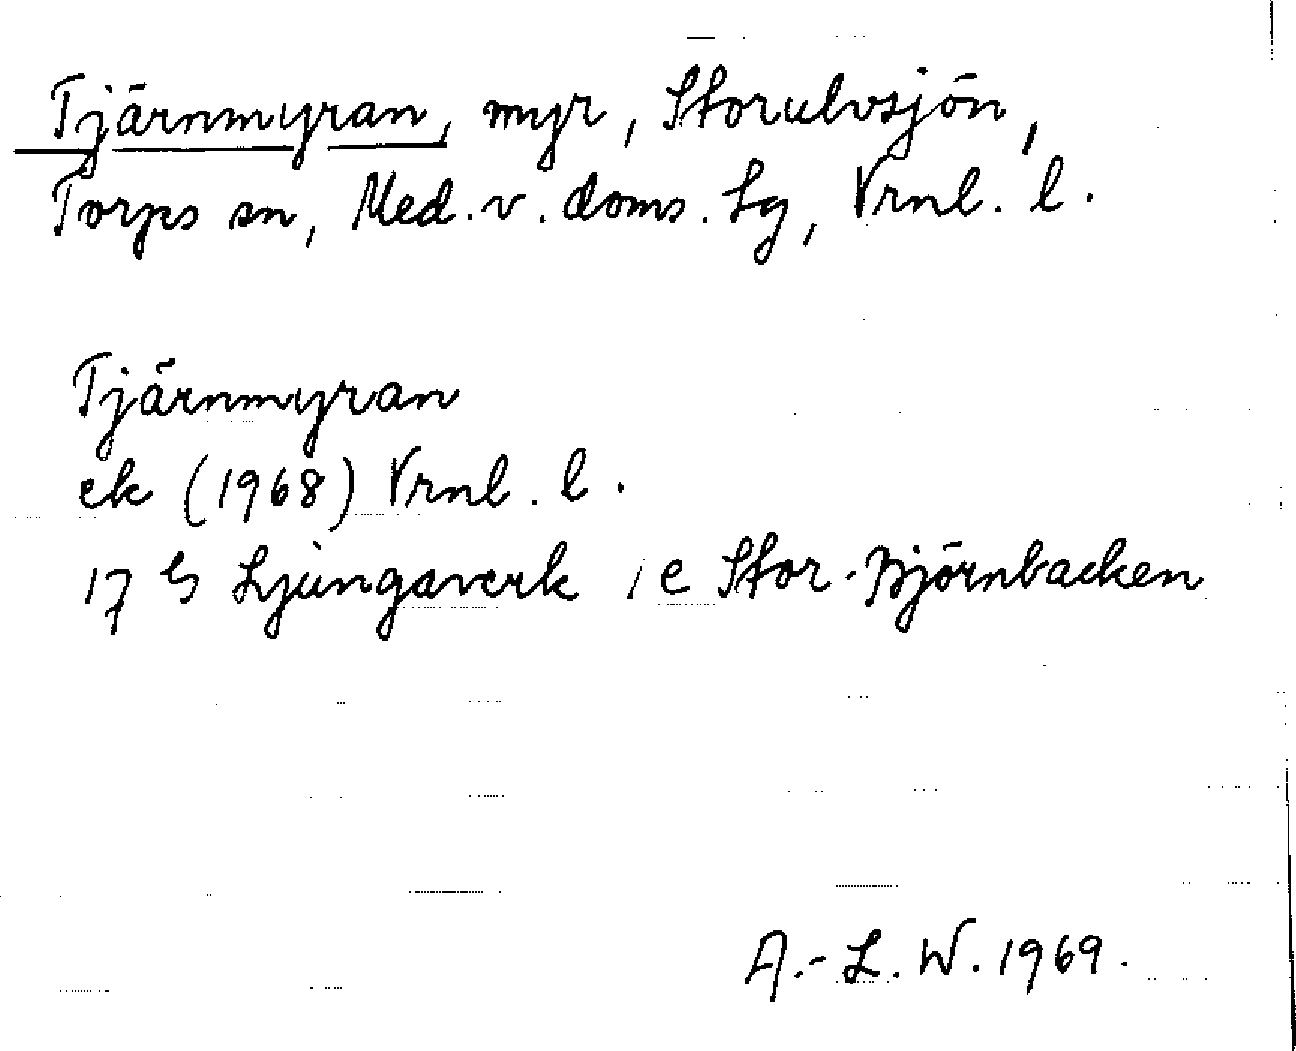 Tjärnmyran, myr, Storulvsjön,
Torps sn, Med. v. doms. Lg, Vrnl. l.
Tjärnmyran
ek (1968) Vrnl. l.
17 G Ljungaverk 1 e Stor-Björnbacken
A.-L. W. 1969.